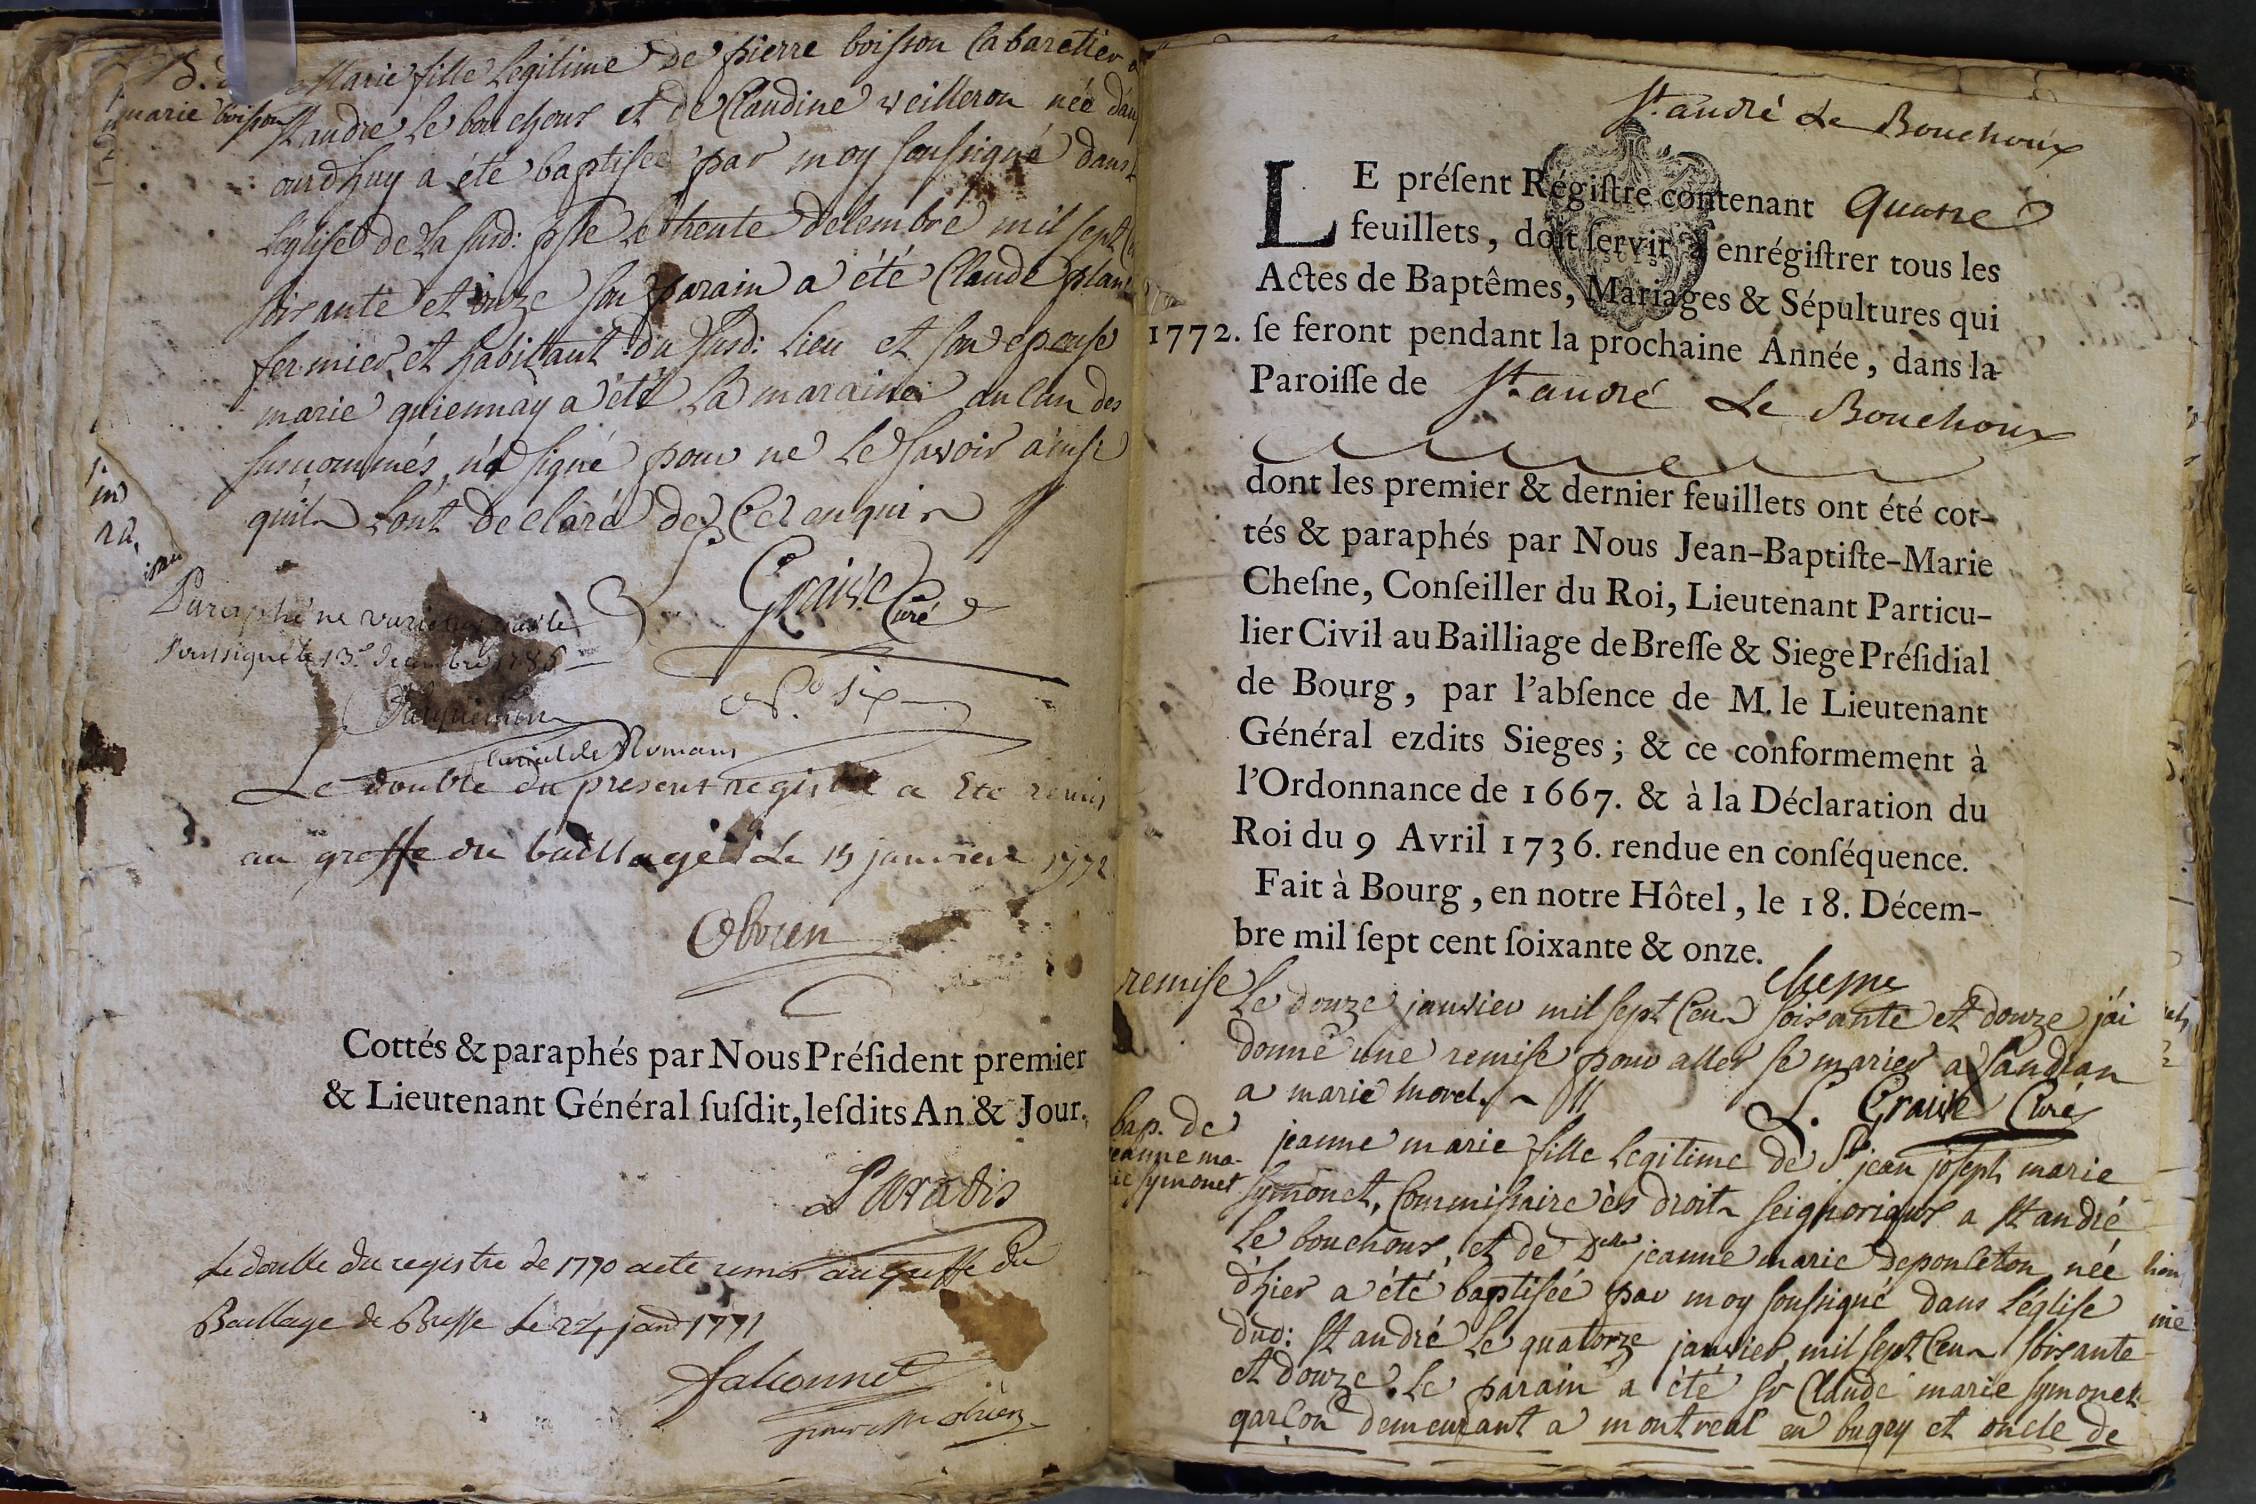 Marie fille Legitime de pierre boisson Cabaretier a
marie boisson
St andre le bouchoux et de Claudine veilleron née d'auj
ourdhuy a été baptisée par moy soussigné dans
L'eglise de la susd: psse le trente decembre mil sept C
soixante et onze son parain a été Claude plan
fermier et habittant du susd: lieu et son epouse
marie guiennay a été la maraine aucun des
susnommés n'a signé pour ne le savoir ainsi
quils l'ont declaré de ce enquis
Graive Curé
Paraphé ne varietur par le
soussigné le 13e decembre 1786
curial de Romans
Le double du present registre a Eté remis
au greffe du baillage Le 15 janvier 1772
Obrien
Cottés & paraphés par Nous Préſident premier
& Lieutenant Général ſuſdit, leſdits An & Jour.
Paradis
Le double du registre de 1770 a eté remis au greffe du
Baillage de Bresse le 24 janr 1771
falconnet
pour Mr obrien
St. andré Le Bouchoux
LE préſent Régiſtre contenant Quatre
feuillets, doit ſervir à enrégiſtrer tous les
Actes de Baptêmes, Mariages & Sépultures qui
1772. ſe feront pendant la prochaine Année, dans la
Paroiſſe de St. andré Le Bouchoux
dont les premier & dernier feuillets ont été cot-
tés & paraphés par Nous Jean-Baptiſte-Marie
Cheſne, Conſeiller du Roi, Lieutenant Particu-
lier Civil au Bailliage de Breſſe & Siege Préſidial
de Bourg, par l'abſence de M. le Lieutenant
Général ezdits Sieges; & ce conformement à
l'Ordonnance de 1667. & à la Déclaration du
Roi du 9 Avril 1736. rendue en conſéquence.
Fait à Bourg, en notre Hôtel, le 18. Décem-
bre mil ſept cent ſoixante & onze.
chesne
remise
Le douze janvier mil sept Cent soixante et douze j'ai
donné une remise pour aller se marier a
a marie morel
L. Graive Curé
bap. de
jeanne ma-
rie symonet
jeanne marie fille legitime de Sr jean joseph marie
symonet, Commissaire ès droits seignoriaux a St andré
le bouchoux, et de Dlle jeanne marie deponceton née
d'hier a été baptisée par moy soussigné dans l'église
dud: St andré le quatorze janvier mil sept Cent soixante
et douze. Le parain a été sr Claude marie symonet
garçon demeurant a montreal en bugey et oncle de